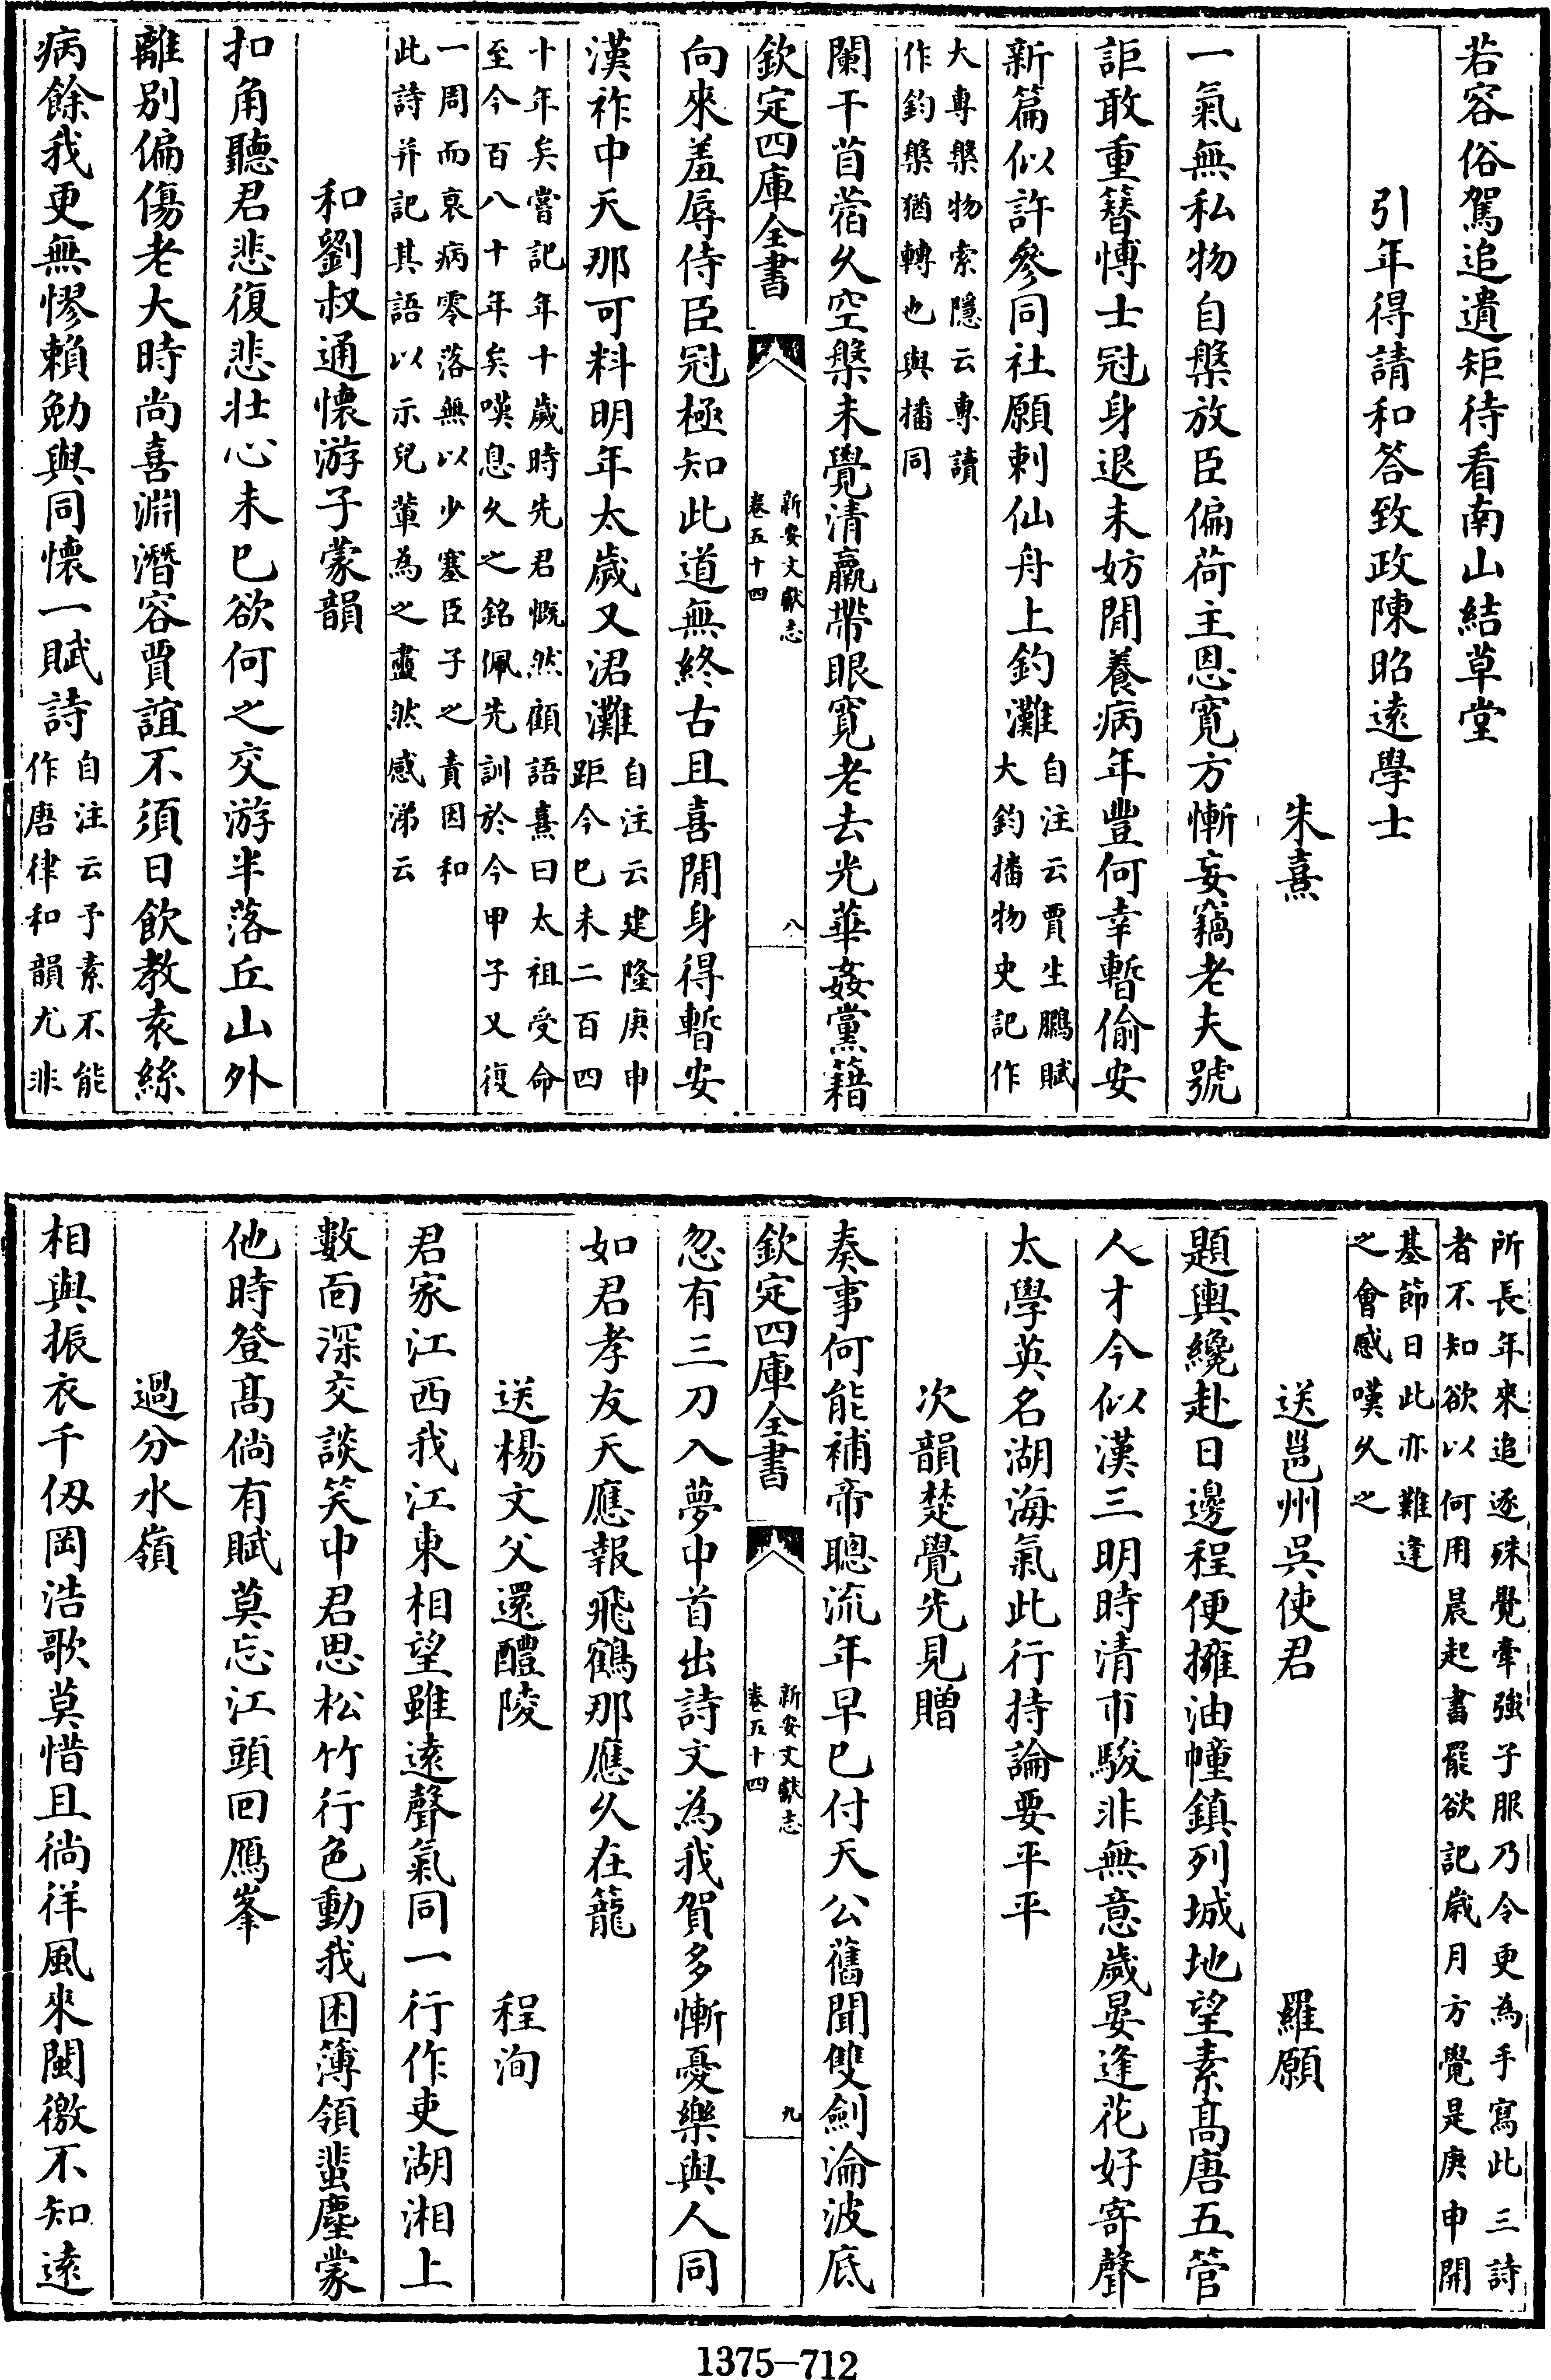 若容俗駕追遺矩待看南山結草堂
引年得請和答致政陳昭遠學士
朱熹
一氣無私物自槃放臣偏荷主恩寛方慚妄竊老夫號
詎敢重簪博士冠身退未妨閒養病年豐何幸暫偷安
新篇似許參同社願刺仙舟上釣灘自注云賈生鵩賦
大鈞播物史記作
大專槃物索隱云專讀
作鈞槃猶轉也與播同
闌干苜蓿久空槃未覺清羸帶眼寛老去光華姦黨籍
欽定四庫全書
新安文獻志
卷五十四
八
向來羞辱侍臣冠極知此道無終古且喜閒身得暫安
漢祚中天那可料明年太歲又涒灘自注云建隆庚申
距今已未二百四
十年矣嘗記年十歲時先君慨然顧語熹曰太祖受命
至今百八十年矣嘆息久之銘佩先訓於今甲子又復
一周而衰病零落無以少塞臣子之責因和
此詩并記其語以示兒輩為之盡然感涕云
和劉叔通懷游子蒙韻
扣角聽君悲復悲壯心未已欲何之交游半落丘山外
離别偏傷老大時尚喜淵潛容賈誼不須日飲教袁絲
病餘我更無憀賴勉與同懷一賦詩自注云予素不能
作唐律和韻尤非
所長年來追逐殊覺牽強子服乃令更為手寫此三詩
者不知欲以何用晨起書罷欲記歲月方覺是庚申開
基節日此亦難逢
之會感嘆久之
送邕州吳使君
羅願
題輿纔赴日邊程便擁油幢鎮列城地望素髙唐五管
人才今似漢三明時清市駿非無意歲晏逢花好寄聲
太學英名湖海氣此行持論要平平
次韻楚覺先見贈
奏事何能補帝聰流年早已付天公舊聞雙劍淪波底
欽定四庫全書
新安文獻志
卷五十四
九
忽有三刀入夢中首出詩文為我賀多慚憂樂與人同
如君孝友天應報飛鶴那應久在籠
送楊文父還醴陵
程洵
君家江西我江東相望雖遠聲氣同一行作吏湖湘上
數面深交談笑中君思松竹行色動我困簿領蜚塵蒙
他時登髙倘有賦莫忘江頭回鴈峯
過分水嶺
相與振衣千仭岡浩歌莫惜且徜徉風來閩徼不知遠
1375—712